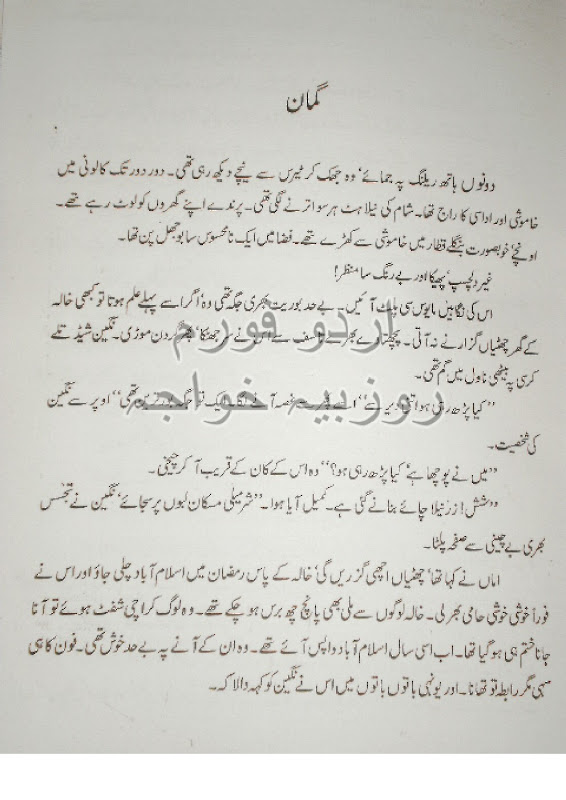 گمان
دونوں ہاتھ ریلنگ پہ جمائے' وہ جھک کر ٹیرس سے نیچے دیکھ رہی تھی۔ دور دور تک کالونی میں
خاموشی اور اداسی کا راج تھا۔ شام کی نیلاہٹ ہر سو اترنے لگی تھی۔ پرندے اپنے گھروں کو لوٹ رہے تھے۔
اونچے' خوبصورت بنگلے قطار میں خاموشی سے کھڑے تھے۔ فضا میں ایک نامحسوس سا بوجھل پن تھا۔
غیر دلچسپ' پھیکا اور بے رنگ سا منظر!
اس کی نگاہیں مایوس سی پلٹ آئیں۔ بے حد بوریت بھری جگہ تھی وہ اگر اسے پہلے علم ہوتا تو کبھی خالہ
کے گھر چھٹیاں گزارنے نہ آتی۔ پچھتاوے بھرے تاسف سے اس نے سر جھٹکا' پھر گردن موڑی۔ نگین شیڈ تلے
کرسی پہ بیٹھی ناول میں گم تھی۔
"کیا پڑھ رہی ہو اتنی دیر سے" اسے پھر سے غصہ آنے لگا۔ ایک تو جگہ بور ترین تھی' اوپر سے نگین
کی شخصیت۔
"میں نے پوچھا ہے' کیا پڑھ رہی ہو؟" وہ اس کے کان کے قریب آ کر چیخی۔
"شش! زرنیلا چائے بنانے گئی ہے۔ کمیل آیا ہوا۔" شرمیلی مسکان لبوں پر سجائے' نگین نے تجسّس
بھری بے چینی سے صفحہ پلٹا۔
اماں نے کہا تھا' چھٹیاں اچھی گزریں گی' خالہ کے پاس رمضان میں اسلام آباد چلی جاؤ اور اس نے
فوراً خوشی خوشی حامی بھر لی۔ خالہ لوگوں سے ملی بھی پانچ چھ برس ہو چکے تھے۔ وہ لوگ کراچی شفٹ ہوئے تو آنا
جانا ختم ہی ہو گیا تھا۔ اب اسی سال اسلام آباد واپس آئے تھے۔ وہ ان کے آنے پہ بے حد خوش تھی۔ فون کا ہی
سہی مگر رابطہ تو تھا نا۔ اور یونہی باتوں باتوں میں اس نے نگین کو کہہ ڈالا کہ۔
اردو فورم
روزبیہ خواجہ